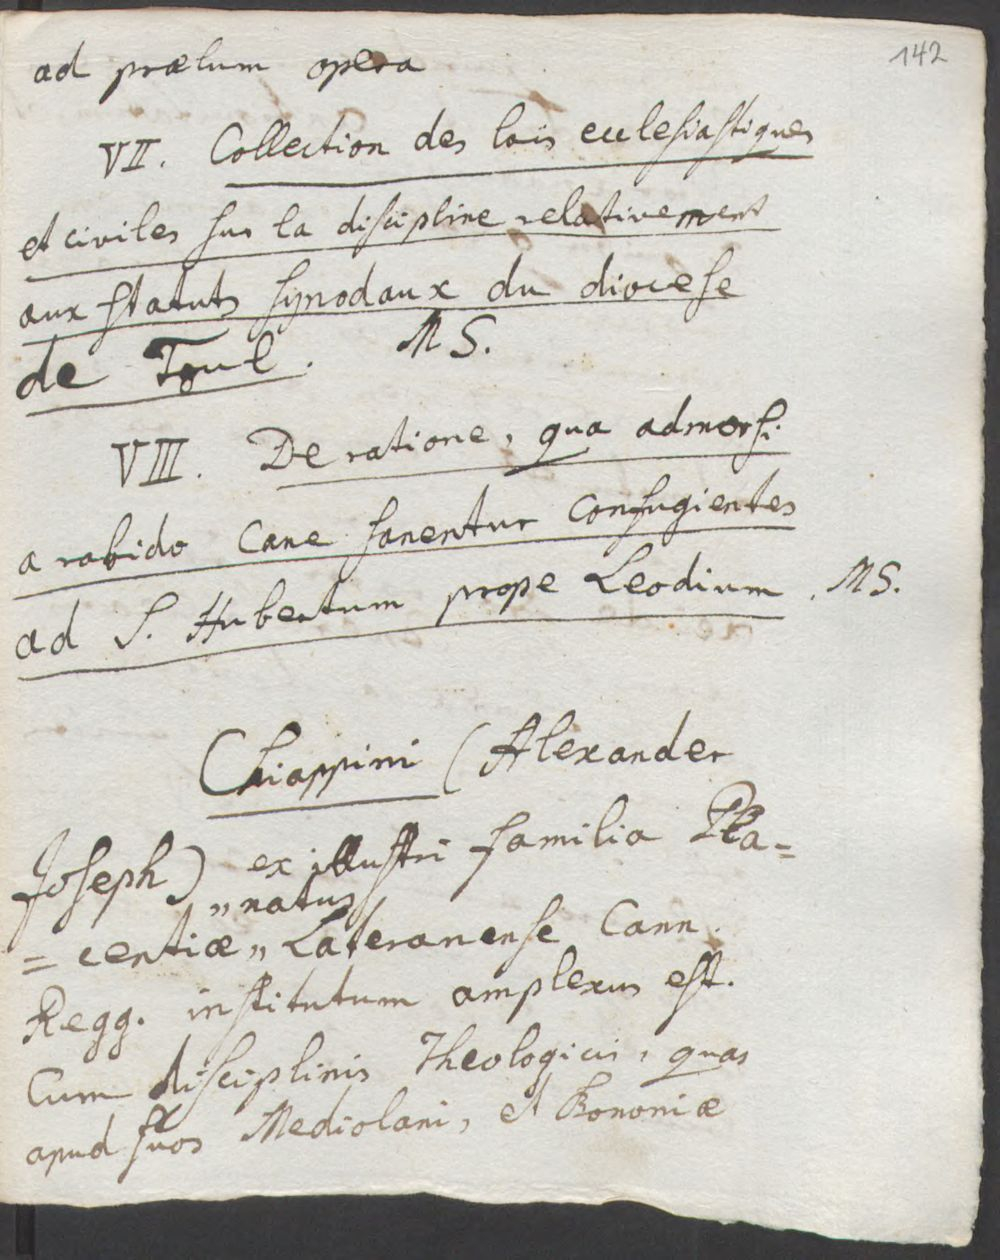 142
ad prælum opera
VII. Collection des lois ecclesiastiques
et civiles sur la discipline relativement
aux statuts synodaux du diocese
de Toul. MS.
VIII. De ratione, qua admorsi
a rabido Cane sanentur Confugientes
ad S. Hubertum prope Leodium. MS.
Chiappini (Alexander
Joseph) ex illustri familia Pla=
„natus
=centiæ„ Lateranense Cann.
Regg. institutum amplexus est.
Cum disciplinis Theologicis, quas
apud suos Mediolani, et Bononiæ